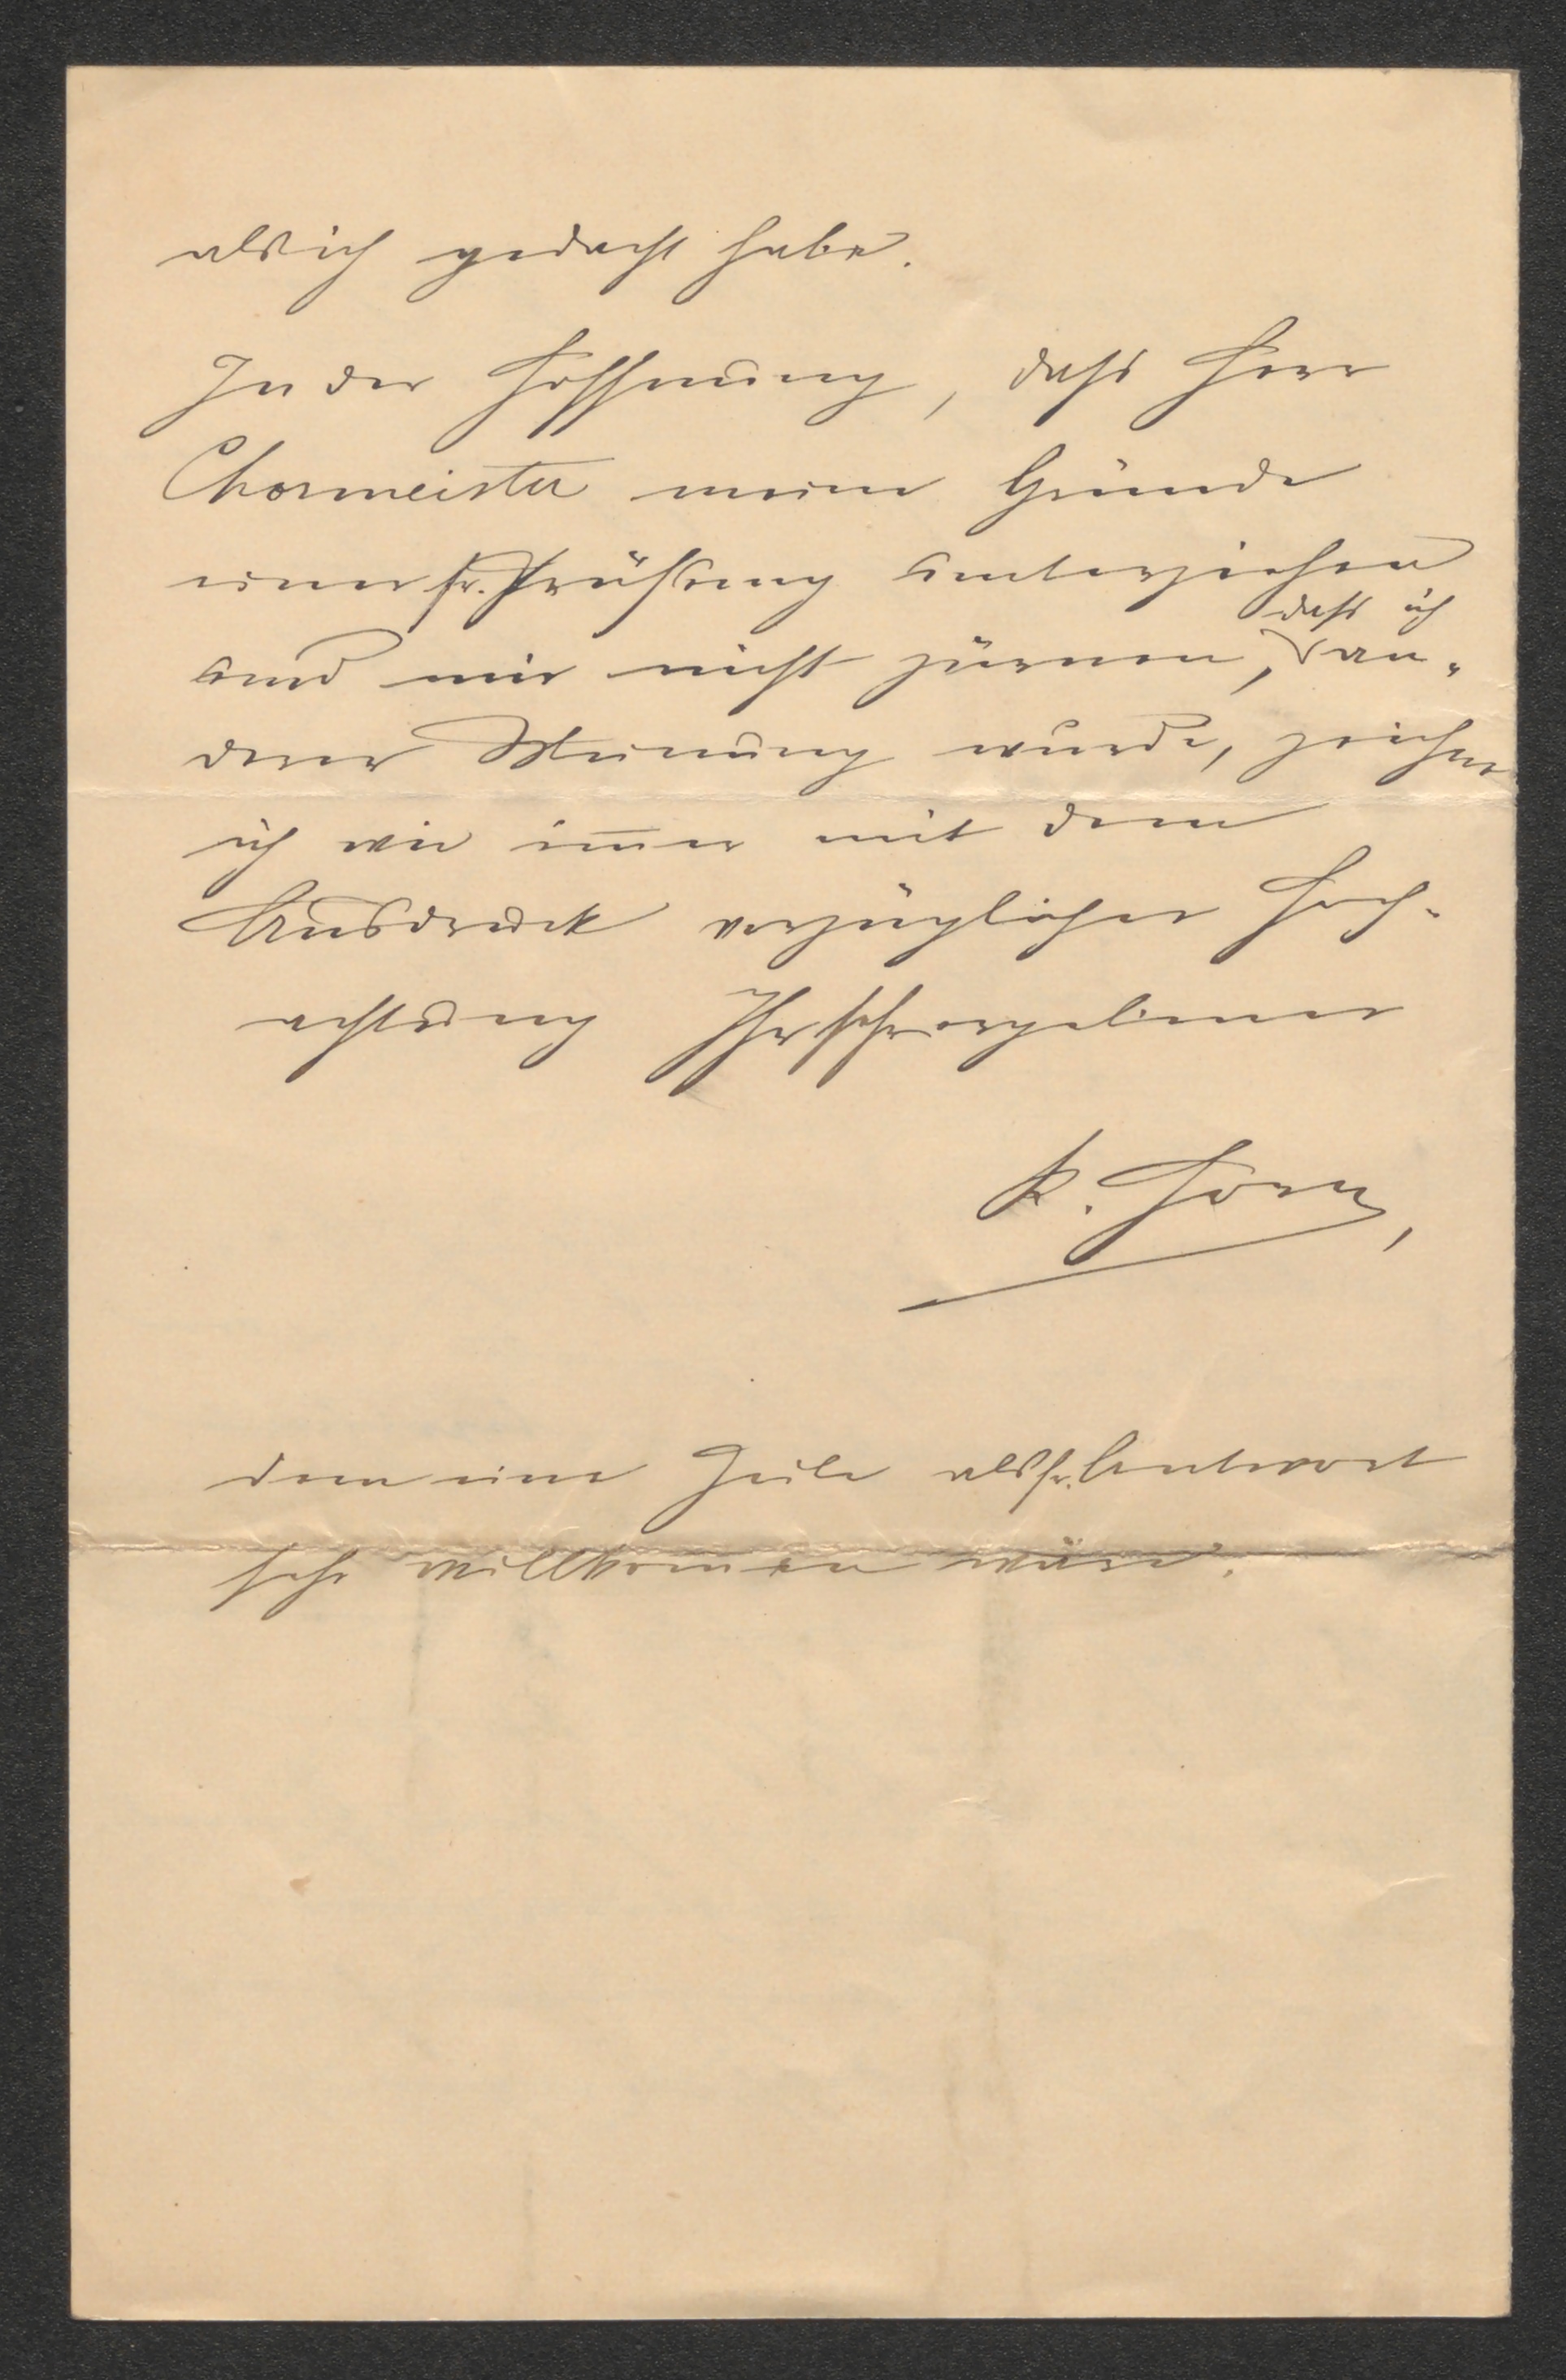 als ich gedacht habe.
In der Hoffnung, dass Herr
Chormeister meine Gründe
einer fr. Prüfung unterziehen
dass ich
und mir nicht zürnen, an-
derer Meinung wurde, zeichne
ich wie im̅er mit dem
Ausdruck vorzüglicher Hoch-
achtung Ihr sehr ergebener
K. Horn,
dem eine Zeile als fr. Antwort
sehr willkom̅en wäre.